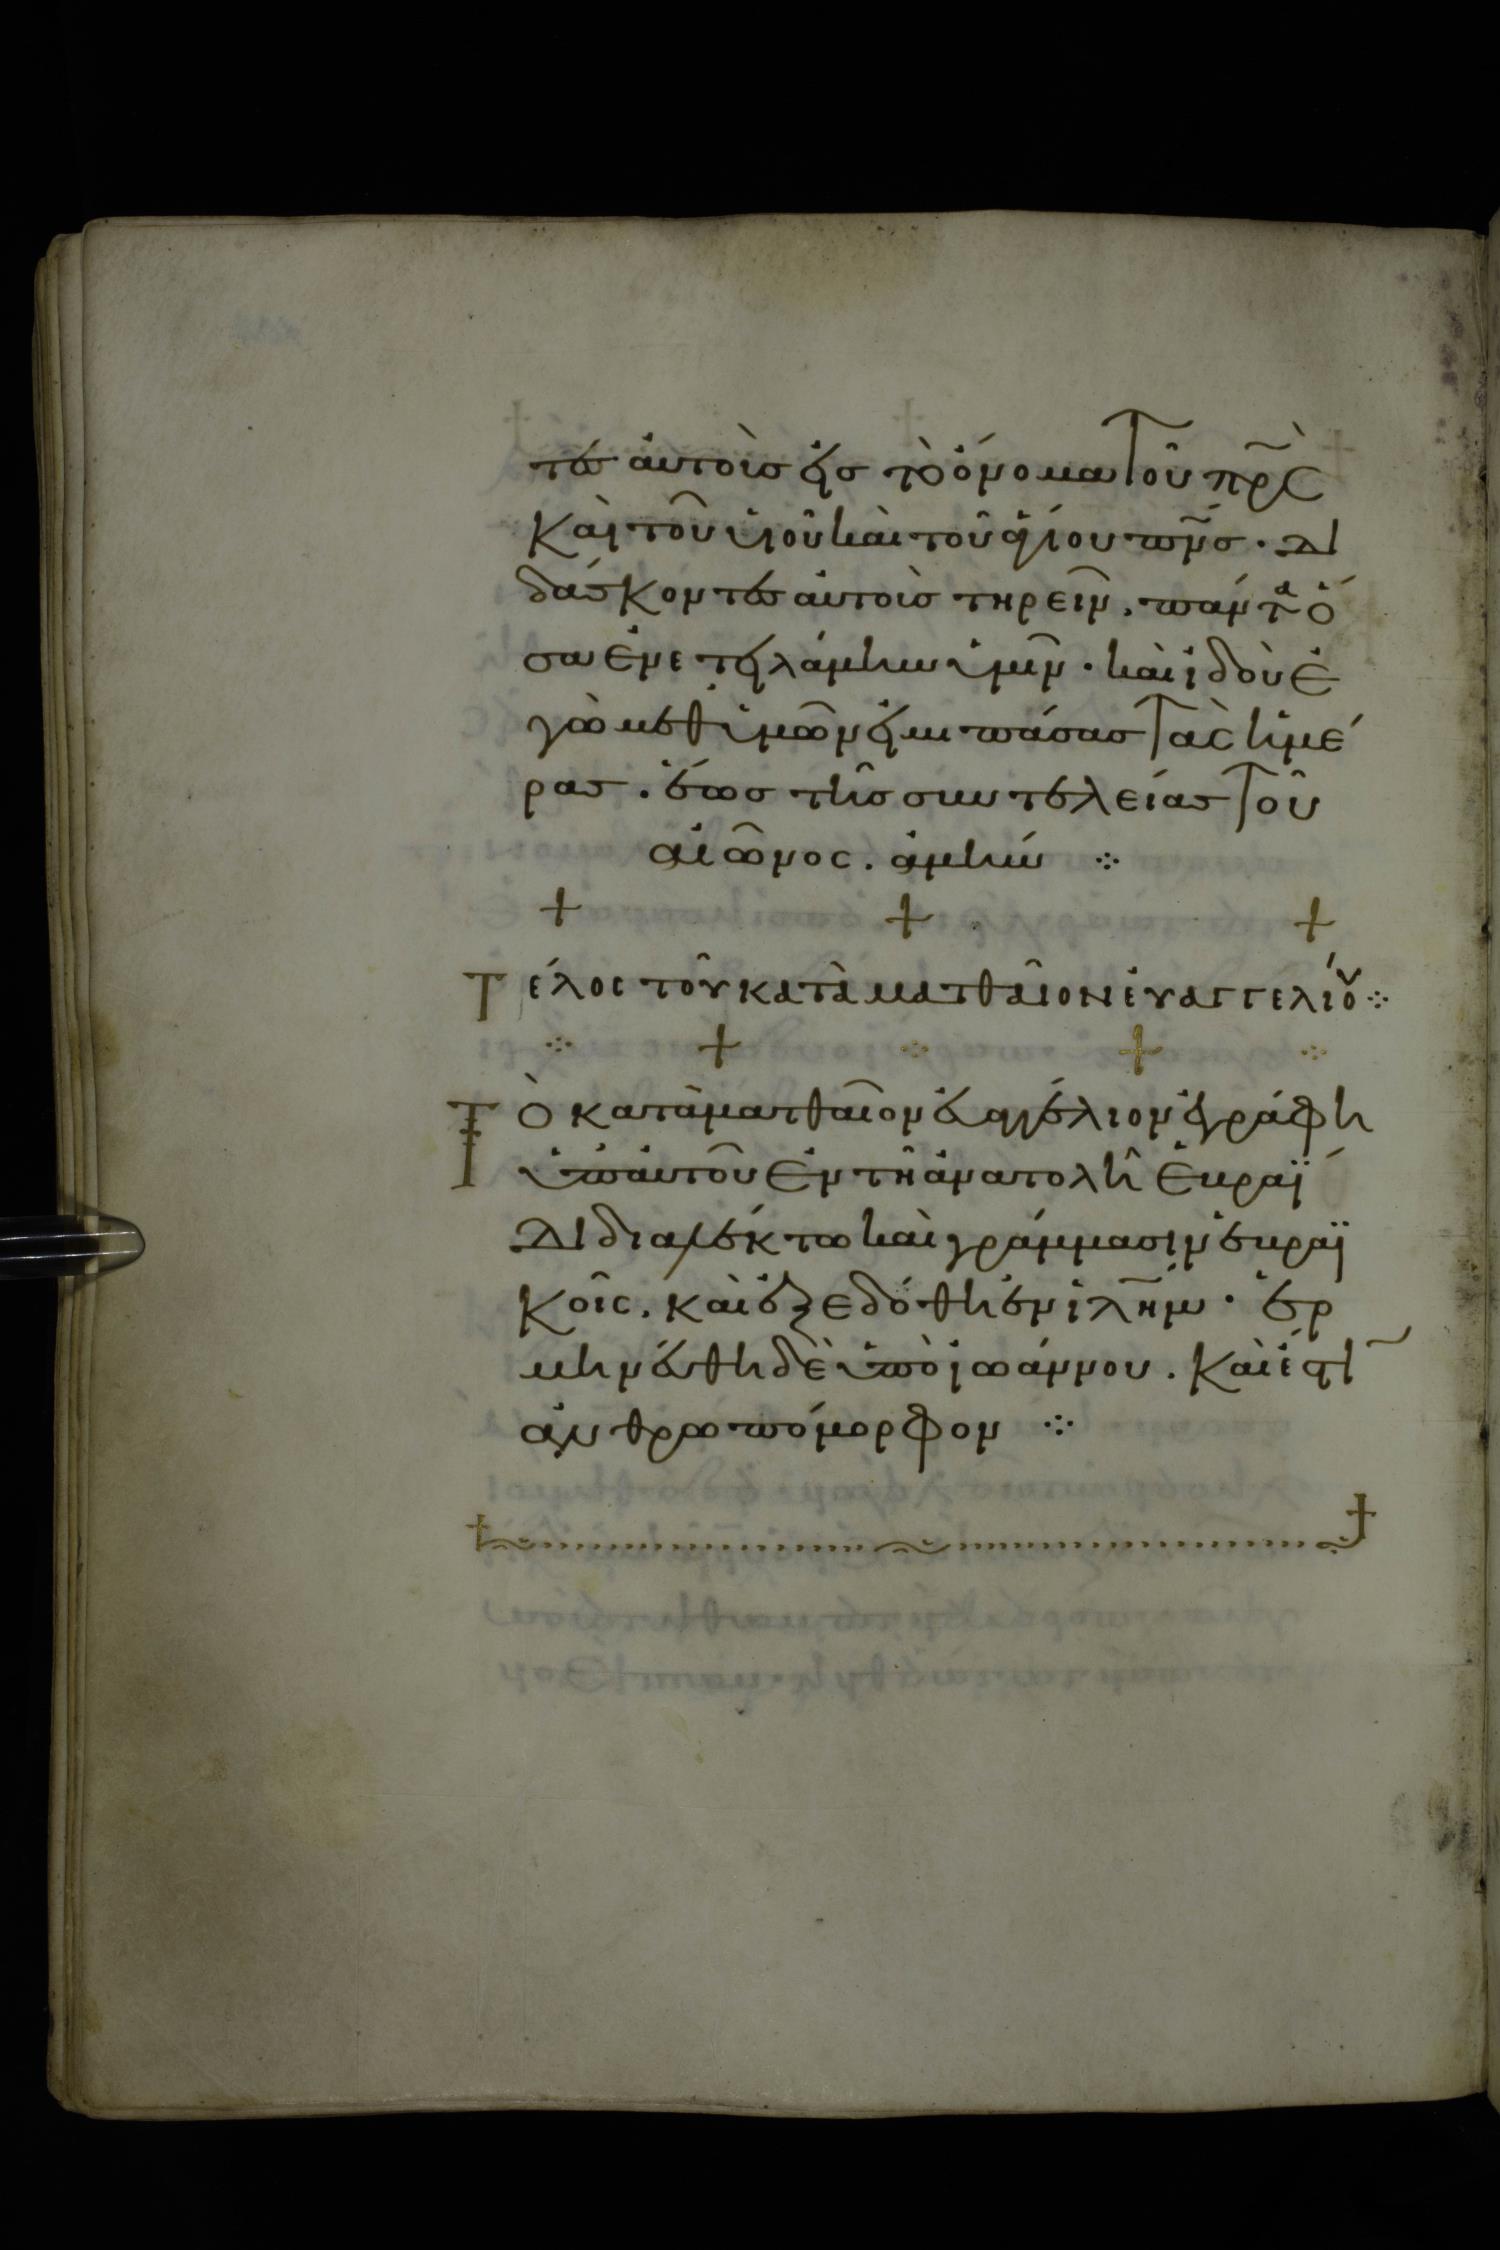 τες αυτοὺς εἰς τὸ ὄνομα τοῦ πρ̅ς
Καὶ τοῦ υἱοῦ καὶ τοῦ ἁγίου πν̅ς · Δι
δάσκοντες αὐτοὺς τηρεῖν, πάντα ὅ
σα ἐνετειλάμην ὑμῖν · καὶ ἰδοὺ ἐ
γὼ μεθ ὑμῶν εἰμι πάσας τὰς ἡμέ
ρας · ἕως τῆς συντελείας τοῦ
αἰῶνος. ἀμήν ⁘
+ + +
Τέλος τοῦ κατὰ ματθαῖον εὐαγγελίου ⁘
⁘ + ⁘ + ⁘
Τὸ κατὰ ματθαῖον εὐαγγέλιον ἐγράφη
ὑπ' αὐτοῦ ἐν τῆ ἀνατολῆ ἑβραΐ
Δι διαλέκτω καὶ γράμμασιν ἑβραϊ
Κοῖς. καὶ ἐξεδόθη ἐν ἱλ̅ημ · ἑρ
μηνεύθη δὲ ὑπὸ ἰωάννου. Καὶ ἐστὶ
ἀνθρωπόμορφον ⁘